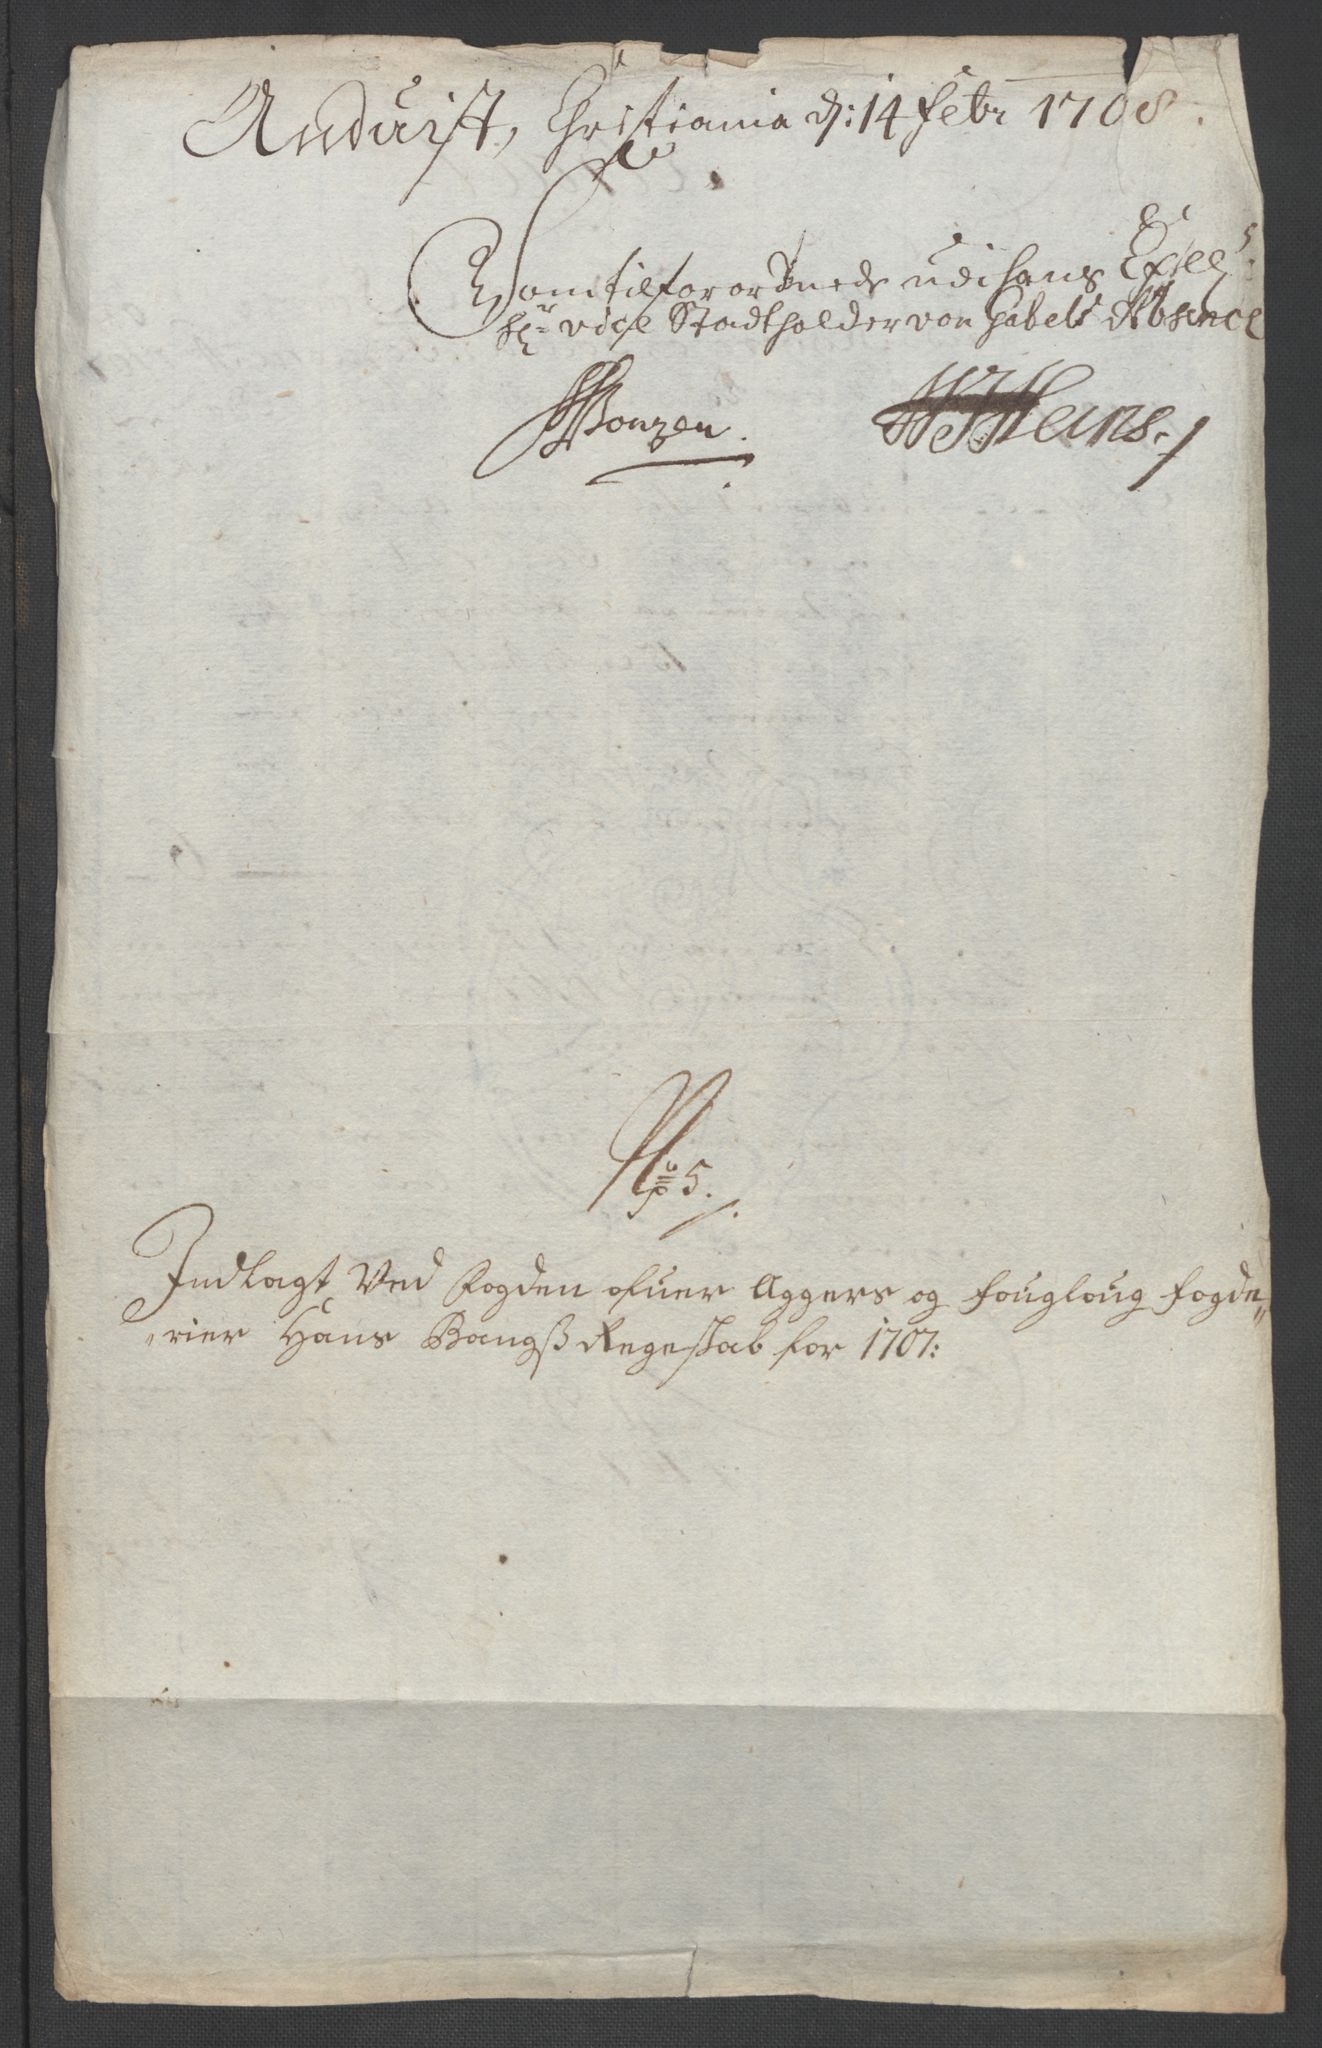 Anduist, Christiania d: 14 Febr 1708.
Som tilforordnede udi hans Excell:s
hr: vice Stadtholder von Gabels Absence
Bonzen. Heins.
No 5.
Indlagt Ved Fogden ofuer Aggers og Fougloug Fogde„
„rier Hans Bangß Regeskab for 1707: